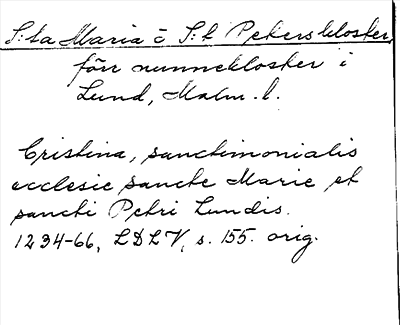 S:ta Maria o S:t Peterskloster,
förr nunnekloster i
Lund, Malm. l.
Cristina, sanctimonialis
ecclesie sancte Marie et
sancti Petri Lundis.
1234-66, LDLV, s. 155. orig.